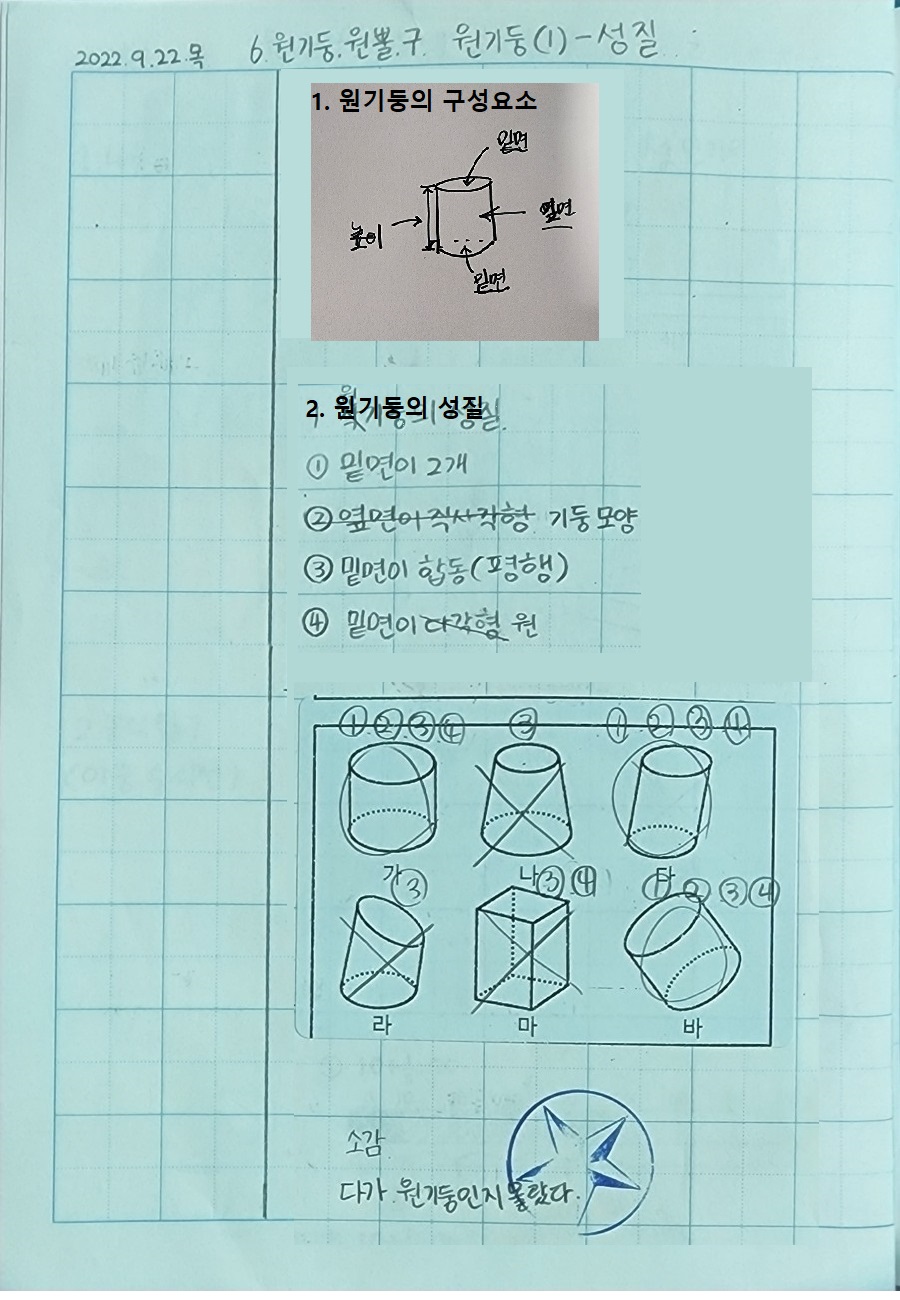 2022.9.22.목 6.원기둥.원뿔.구 원기둥(1)-성질
1. 원기둥의 구성요소
밑면
옆면
높이
밑면
2. 원기둥의 성질
① 밑면이 2개
② 옆면이 직사각형 기둥 모양
③ 밑면이 합동(평행)
④ 밑면이 다각형 원
① ② ③ ④ ③ ① ② ③ ④
가 나 다
③ ③ ④ ① ② ③ ④
라 마 바
소감
다가 원기둥인지 몰랐다.